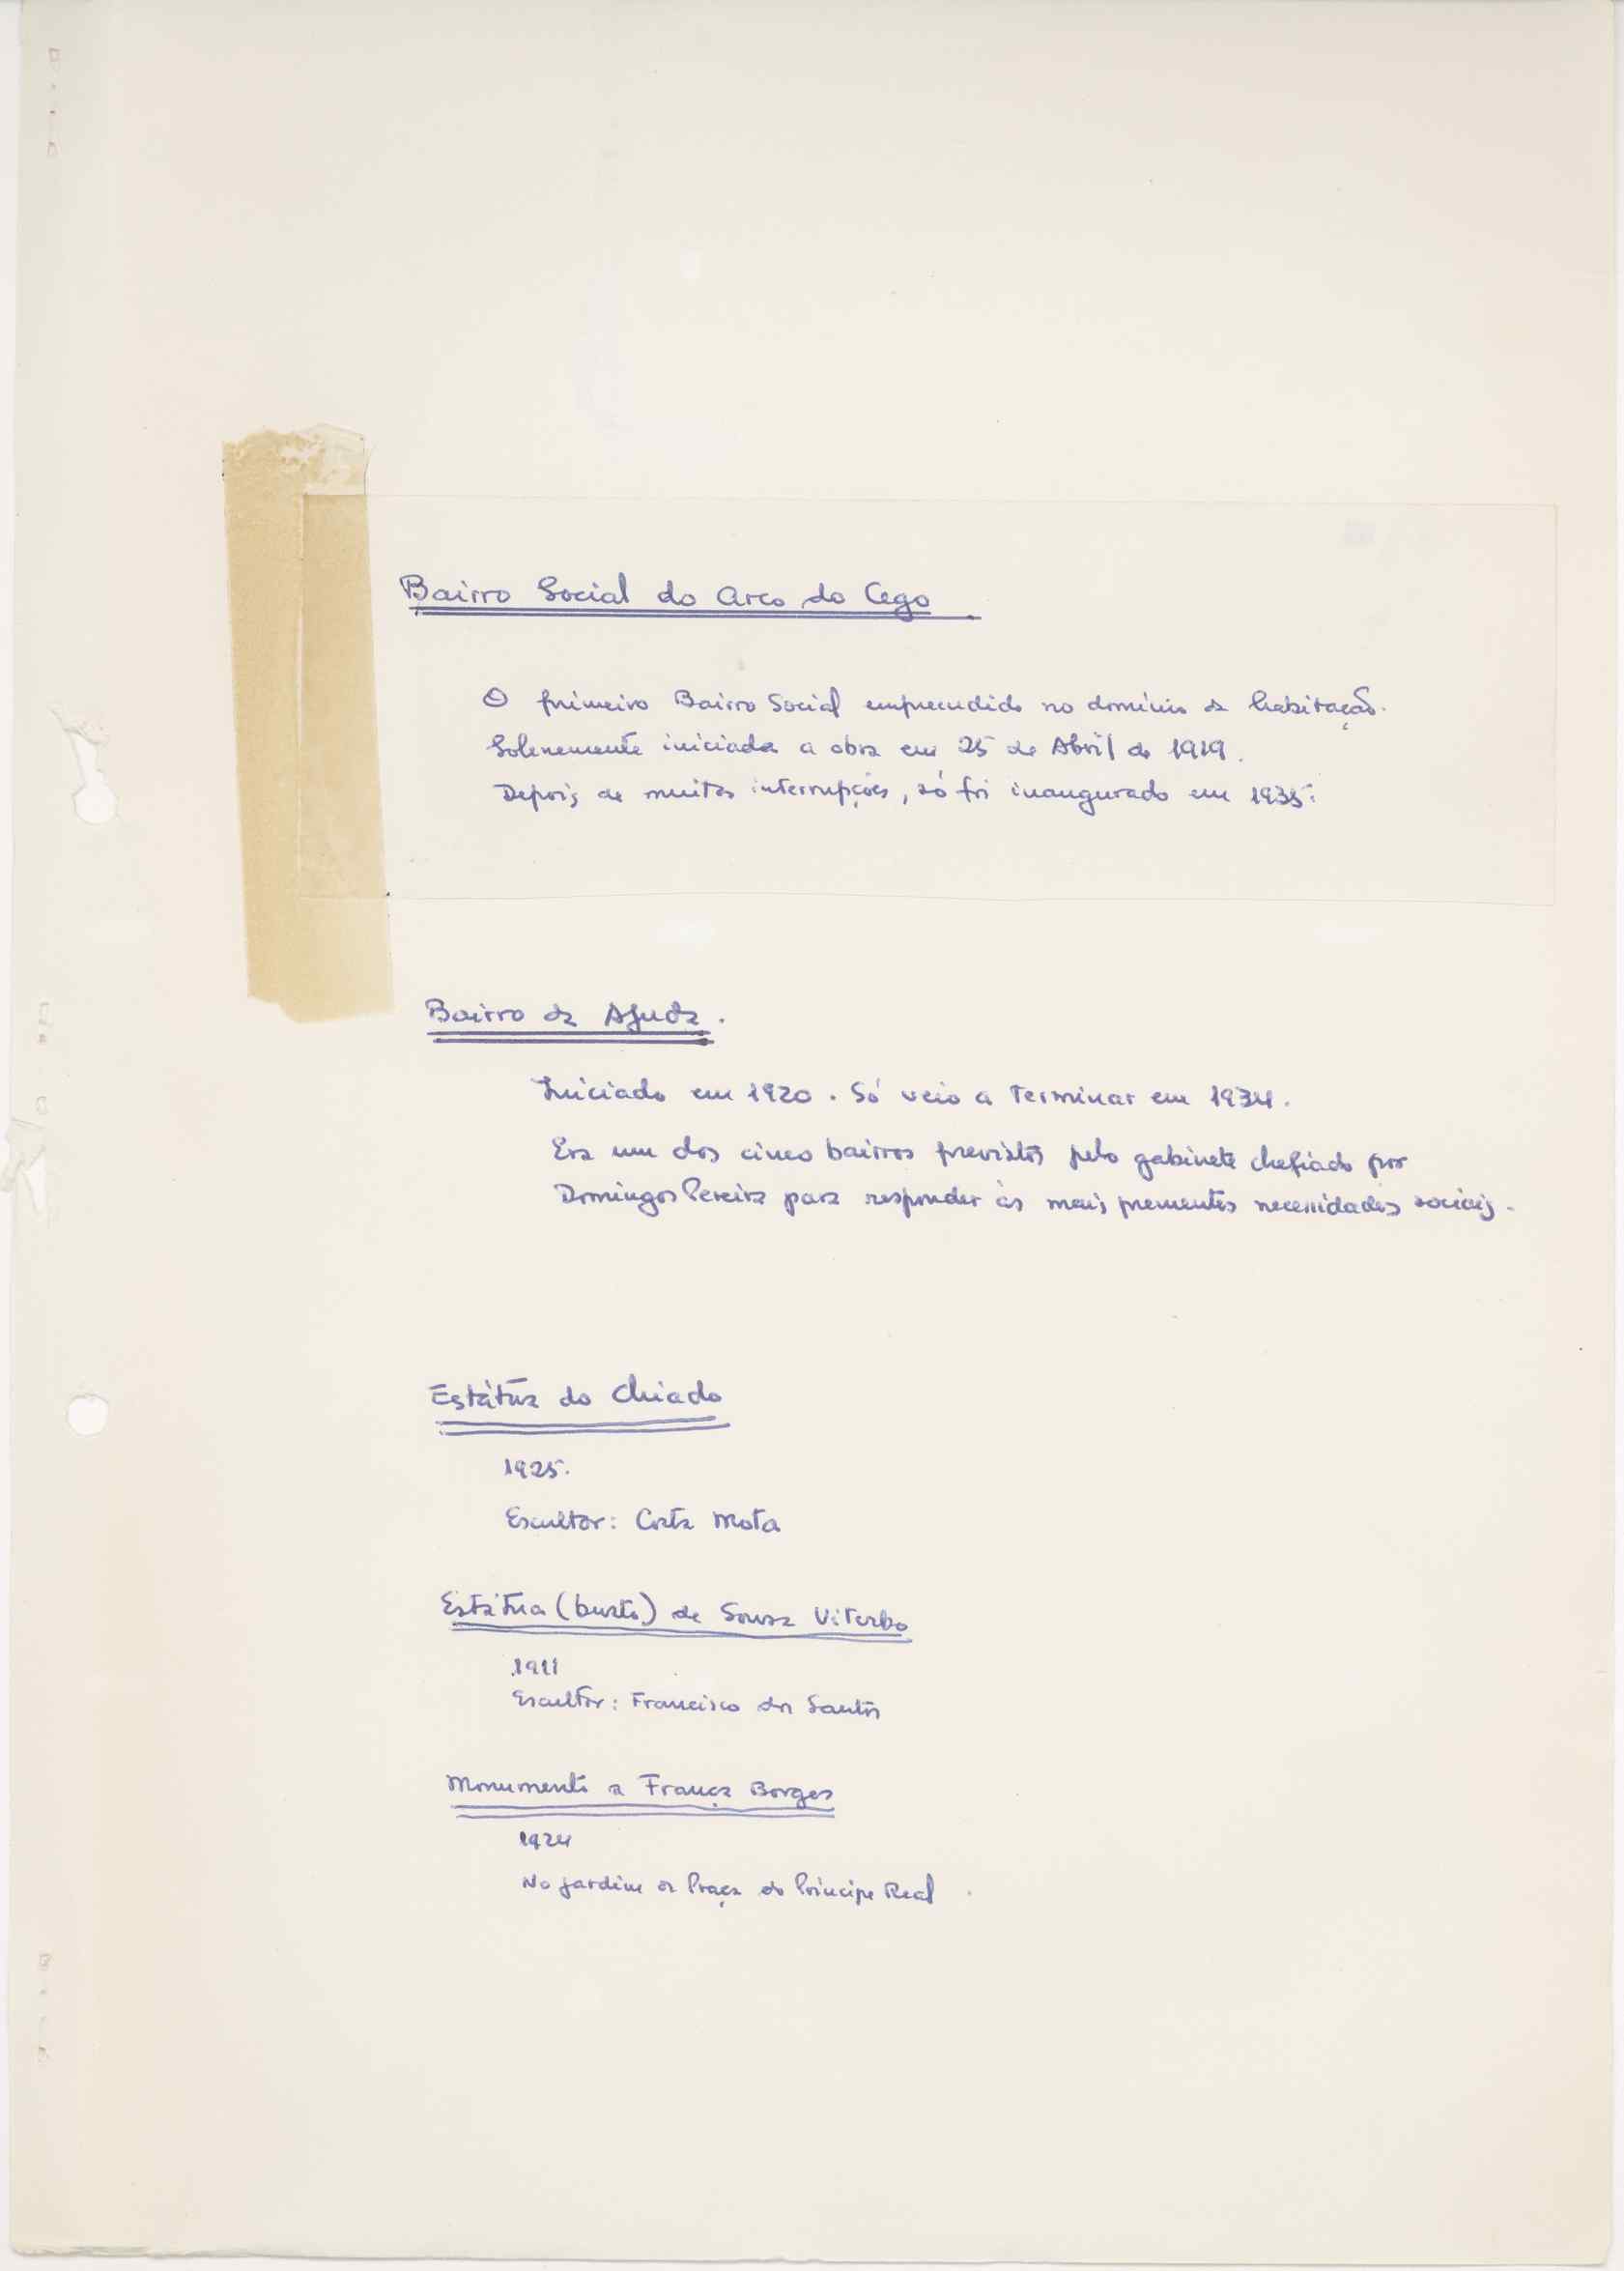 Bairro Social do Arco do Cego
O primeiro Bairro Social empreendido no domínio da habitação.
Solenemente iniciada a obra em 25 de Abril de 1919.
Depois de muitas interrupções, só foi inaugurado em 1935.
Bairro da Ajuda.
Iniciado em 1920. Só veio a Terminar em 1934.
Era um dos cinco bairros previstos pelo gabinete chefiado por
Domingos Pereira para responder às mais prementes necessidades sociais.
Estátua do Chiado
1925.
Escultor: Costa Mota
Estátua (busto) de Sousa Viterbo
1911
Escultor: Francisco dos Santos
Monumento a França Borges
1924
No jardim da Praça do Príncipe Real